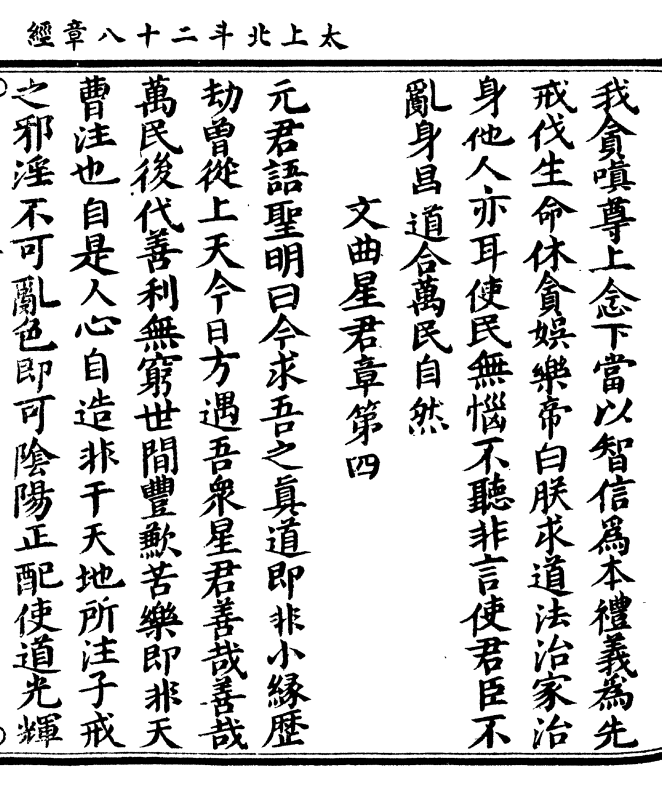 太上北斗二十八章經
我貪嗔尊上念下當以智信爲本禮義爲先
戒伐生命休貪娛樂帝白朕求道法治家治
身他人亦耳使民無惱不聽非言使君臣不
亂身昌道合萬民自然
文曲星君章第四
元君語聖明曰今求吾之真道即非小緣歷
劫曾從上天今日方遇吾衆星君善哉善哉
萬民後代善利無窮世間豐歉苦樂即非天
曹注也自是人心自造非干天地所注子戒
之邪淫不可亂色即可陰陽正配使道光輝